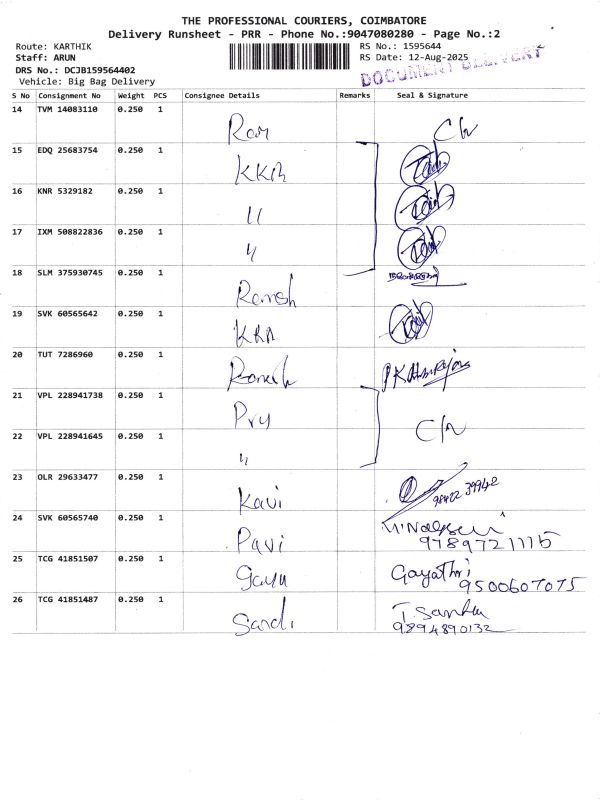 THE PROFESSIONAL COURIERS, COIMBATORE
Delivery Runsheet - PRR - Phone No.:9047080280 - Page No.:2
Route: KARTHIK
RS No.: 1595644
Staff: ARUN
RS Date: 12-Aug-2025
DRS No.: DCJB159564402
DOCUMENT DELIVERY
Vehicle: Big Bag Delivery
S No Consignment No Weight PCS Consignee Details Remarks Seal & Signature
14 TVM 14083110 0.250 1
Ram
15 EDQ 25683754 0.250 1
KKR
16 KNR 5329182 0.250 1
11
17 IXM 508822836 0.250 1
18 SLM 375930745 0.250 1
Ramesh
19 SVK 60565642 0.250 1
20 TUT 7286960 0.250 1
Ramesh
21 VPL 228941738 0.250 1
22 VPL 228941645 0.250 1
23 OLR 29633477 0.250 1
Kavi 98422 39942
24 SVK 60565740 0.250 1
Pavi
9789721115
25 TCG 41851507 0.250 1
Gayu Gayathri
9500607075
26 TCG 41851487 0.250 1
9894890132